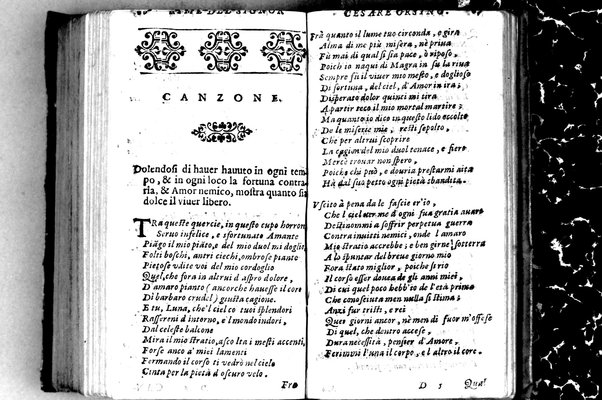 RIME DEL SIGNOR
CANZONE.
Dolendosi di hauer hauuto in ogni tem
po, & in ogni loco la fortuna contra
ria, & Amor nemico, mostra quanto sia
dolce il viuer libero.
TRa queste quercie, in questo cupo horrore
Seruo infelice, e sfortunato Amante
Piãgo il mio piãto, e del mio duol mi doglio,
Folti boschi, antri ciechi, ombrose piante
Pietose vdite voi del mio cordoglio
Quel, che fora in altrui d'aspro dolore,
D'amaro pianto (ancor che hauesse il core
Di barbaro crudel) giusta cagione.
E tu, Luna, che'l ciel co tuoi splendori
Rassereni d'intorno, e'l mondo indori,
Dal celeste balcone
Mira il mio stratio, ascolta i mesti accenti,
Forse anco a' miei lamenti
Fermando il corso ti vedrò nel cielo
Cinta per la pietà d'oscuro velo.
Fra
CESARE ORSINO.
Frà quanto il lume tuo circonda, e gira
Alma di me più misera, nè priua
Fù mai di qual si sia pace, ò riposo,
Poich'io naqui di Magra in su la riua
Sempre fù il viuer mio mesto, e doglioso
Di fortuna, del ciel, d'Amor in ira;
Disperato dolor quinci mi tira
A partir teco il mio mortal martire;
Ma quanto io dico in questo lido occolto
De le miserie mie, resti sepolto,
Che per altrui scoprire
La cagion del mio duol tenace, e fiero
Mercè trouar non spero,
Poiche chi può, e douria prestarmi aita
Hà dal suo petto ogni pietà bandita.
Vscito à pena da le fascie er'io,
Che'l ciel uer me d'ogni sua gratia auaro
Destinommi a soffrir perpetua guerra
Contra inuitti nemici, onde l'amaro
Mio stratio accrebbe; e ben girne sotterra
A lo spuntar del breue giorno mio
Fora stato miglior, poiche s'rio
Il corso esser douea de gli anni miei,
Di cui quel poco hebb'io de l'età prima
Che conosciuta men nulla si stima;
Anzi fur tristi, e rei
Quei giorni ancor, nè men di fuor m'offese
Di quel, che dentro accese,
Dura necessità, pensier d'Amore,
Ferimmi l'una il corpo, e l'altro il core.
D 5 Qual